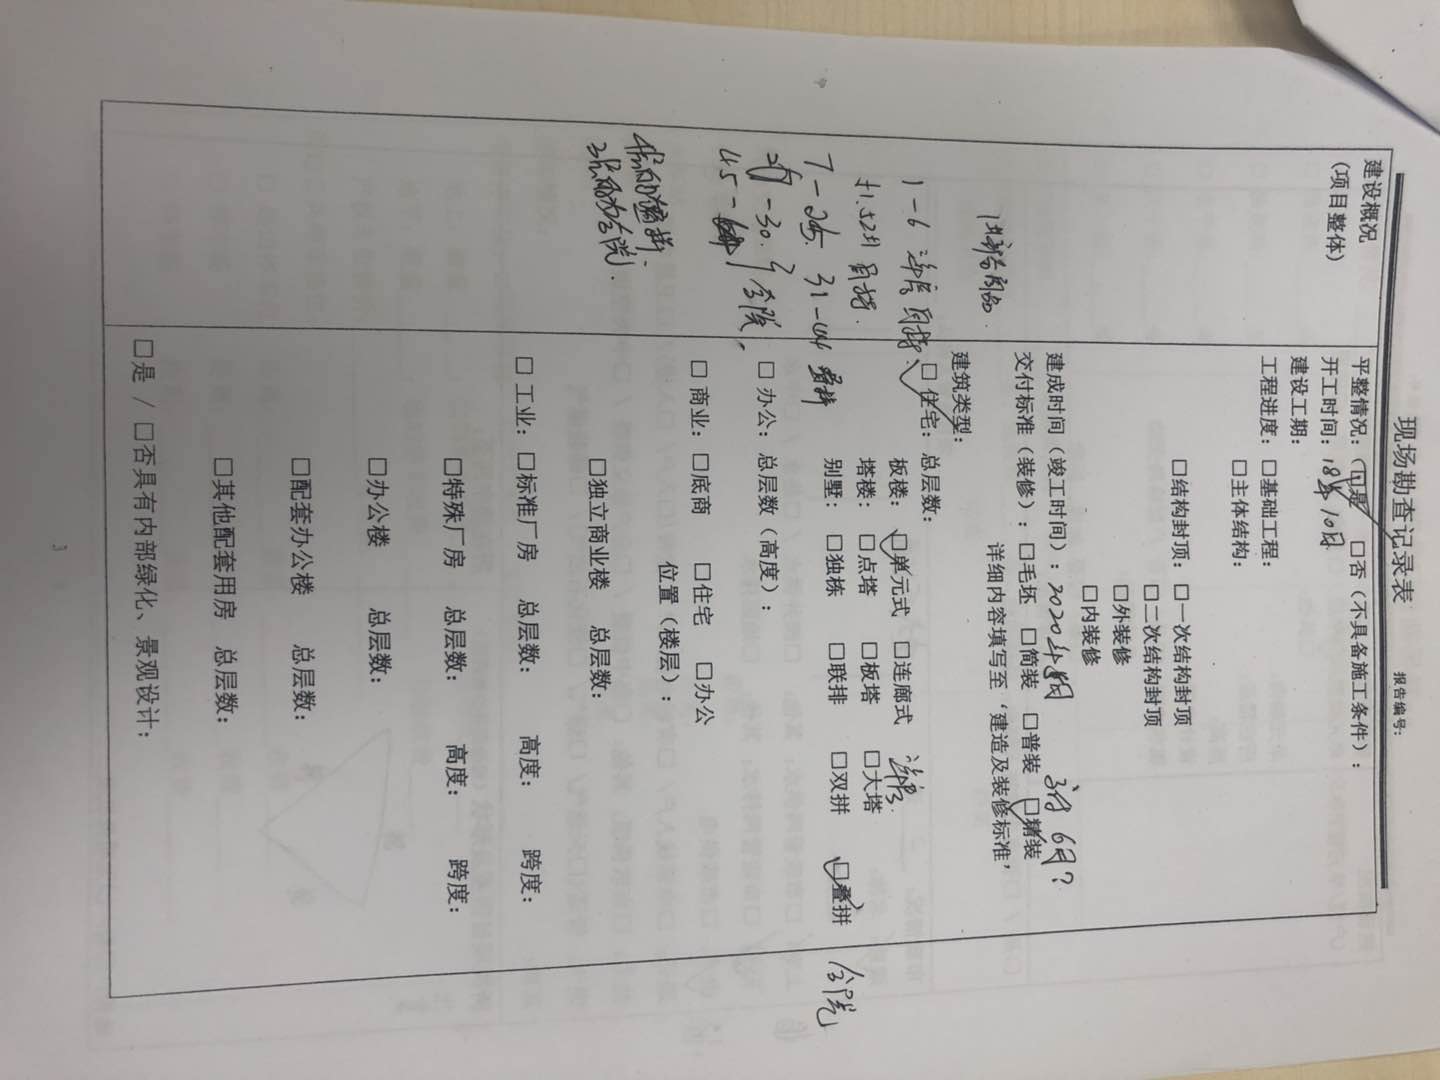 现场勘查记录表
报告编号:
建设概况
(项目整体)
平整情况:(□是 □否(不具备施工条件):
开工时间: 18年10月
建设工期:
工程进度: □基础工程:
□主体结构:
□结构封顶: □一次结构封顶
□二次结构封顶
□外装修
□内装修
建成时间(竣工时间): 2020年 6月?
交付标准(装修): □毛坯 □简装 □普装 □精装
详细内容填写至‘建造及装修标准’
建筑类型:
□住宅: 总层数:
板楼: □单元式 □连廊式 洋房
塔楼: □点塔 □板塔 □大塔
别墅: □独栋 □联排 □双拼 □叠拼 合院
□办公: 总层数(高度):
□商业: □底商 □住宅 □办公
位置(楼层):
□独立商业楼 总层数:
□工业: □标准厂房 总层数: 高度: 跨度:
□特殊厂房 总层数: 高度: 跨度:
□办公楼 总层数:
□配套办公楼 总层数:
□其他配套用房 总层数:
□是 / □否具有内部绿化、景观设计:
1-6 洋房
7-25. 31-44 叠拼
-30.
45- 合院,
3